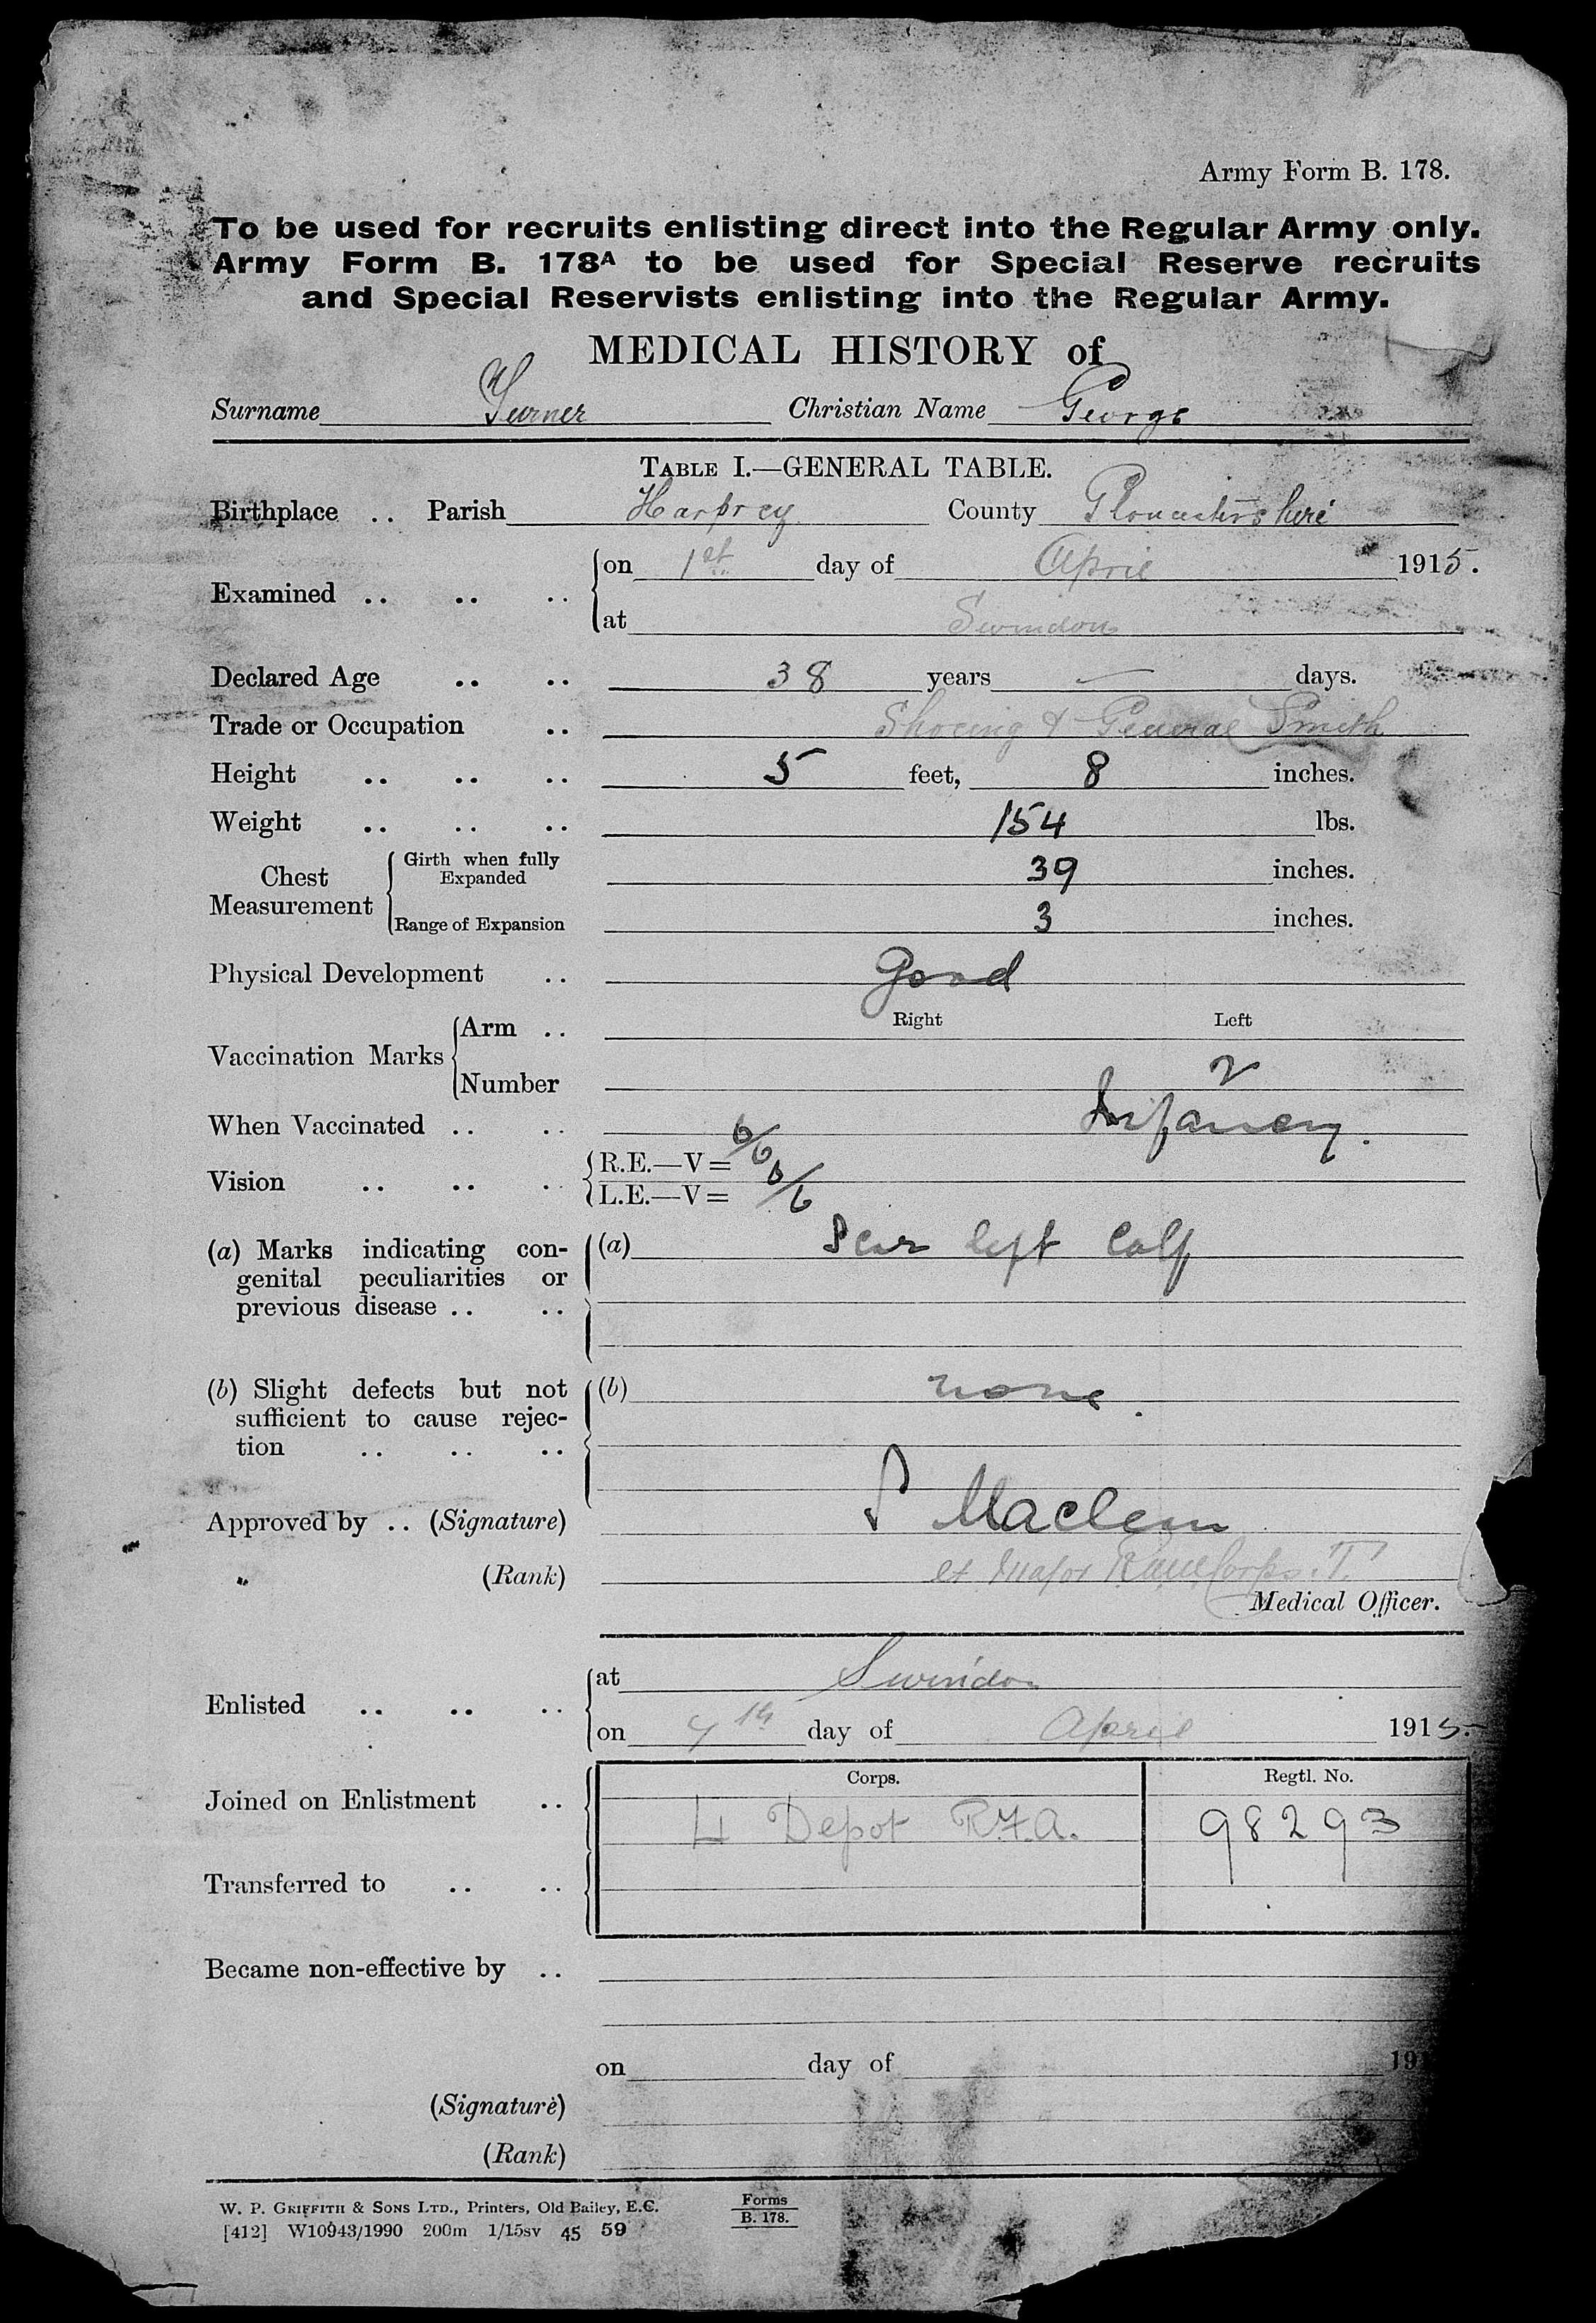 Army Form B. 178.
To be used for recruits enlisting direct into the Regular Army only.
Army Form B. 178A to be used for Special Reserve recruits
and Special Reservists enlisting into the Regular Army.
MEDICAL HISTORY of
Surname Turner Christian Name George
TABLE I.—GENERAL TABLE.
Birthplace .. Parish Harprey County Gloucestershire
Examined .. .. .. on 1st day of April 1915.
at Swindon
Declared Age .. .. 38 years — days.
Trade or Occupation .. Shoeing & General Smith
Height .. .. .. 5 feet, 8 inches.
Weight .. .. .. 154 lbs.
Chest Measurement
Girth when fully Expanded 39 inches.
Range of Expansion 3 inches.
Physical Development .. Good
Right Left
Vaccination Marks Arm ..
Number 2
When Vaccinated .. .. Infancy.
Vision .. .. .. R.E.—V= 6/6
L.E.—V= 6/6
(a) Marks indicating con- (a) Scar left Calf
genital peculiarities or
previous disease .. ..
(b) Slight defects but not (b) none.
sufficient to cause rejec-
tion .. .. ..
Approved by .. (Signature)
„ (Rank) Lt Major R.A.M. Corps. T.
Medical Officer.
Enlisted .. .. .. at Swindon
on 7th day of April 1915.
Corps. Regtl. No.
Joined on Enlistment .. 4 Depot R.F.A. 98293
Transferred to .. ..
Became non-effective by ..
on day of 191
(Signature)
(Rank)
W. P. GRIFFITH & SONS LTD., Printers, Old Bailey, E.C.
[412] W10943/1990 200m 1/15sv 45 59
Forms
B. 178.